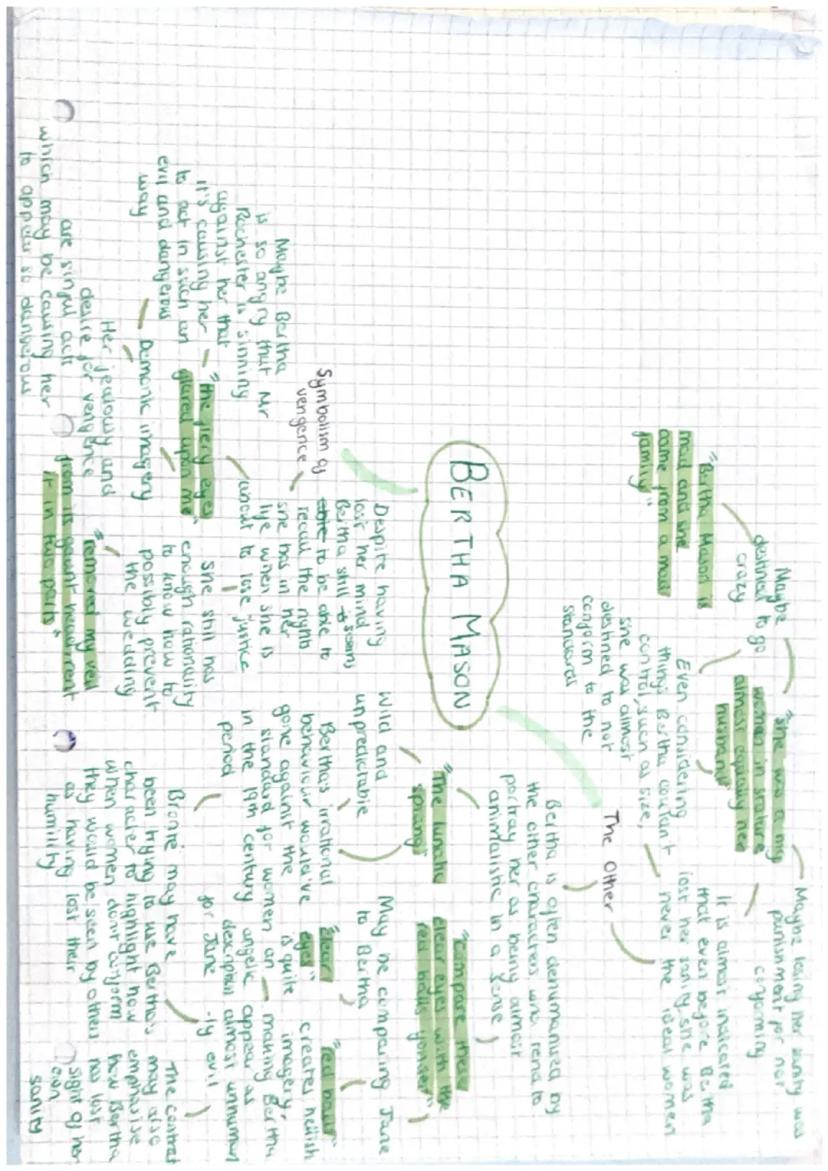 BERTHA MASON
The Other
"Bertha Mason is
mad and she
came from a mad
family"
Maybe
destined to go
crazy
"she was a big
women in stature
almost equalling her
husband"
Maybe losing her sanity was
punishment for not
conforming
It is almost indicated
that even before Bertha
lost her sanity, she was
never the ideal women
Even considering
things Bertha couldn't
control, such as size,
she was almost
destined to not
conform to the
standards
Bertha is often dehumanised by
the other characters who tend to
portray her as being almost
animalistic in a sense
"The lunatic
sprang"
Wild and
unpredictable
Bertha's irrational
behaviour would've
gone against the
standard for women
in the 19th century
period
Bronte may have
been trying to use Bertha's
character to highlight how
when women don't conform
they would be seen by others
as having lost their
humility
"compare these
clear eyes with the
red balls yonder"
May be comparing Jane
to Bertha
"clear
eyes"
is quite
an
angelic
description
for Jane
"red balls"
creates hellish
imagery,
making Bertha
appear as
almost unhuman
-ly evil
The contrast
may also
emphasise
how Bertha
has lost
sight of her
own
sanity
Symbolism of
vengence
Despite having
lost her mind
Bertha still seems
to be able to
recall the rights
she has in her
life when she is
about to lose justice
She still has
enough rationality
to know how to
possibly prevent
the wedding
"removed my veil
from its gaunt head, rent
it in two parts"
"the fiery eyes
glared upon me"
Maybe Bertha
is so angry that Mr
Rochester is sinning
against her that
it's causing her
to act in such an
evil and dangerous
way
Demonic imagery
Her jealousy and
desire for vengence
are sinful acts
which may be causing her
to appear so dangerous